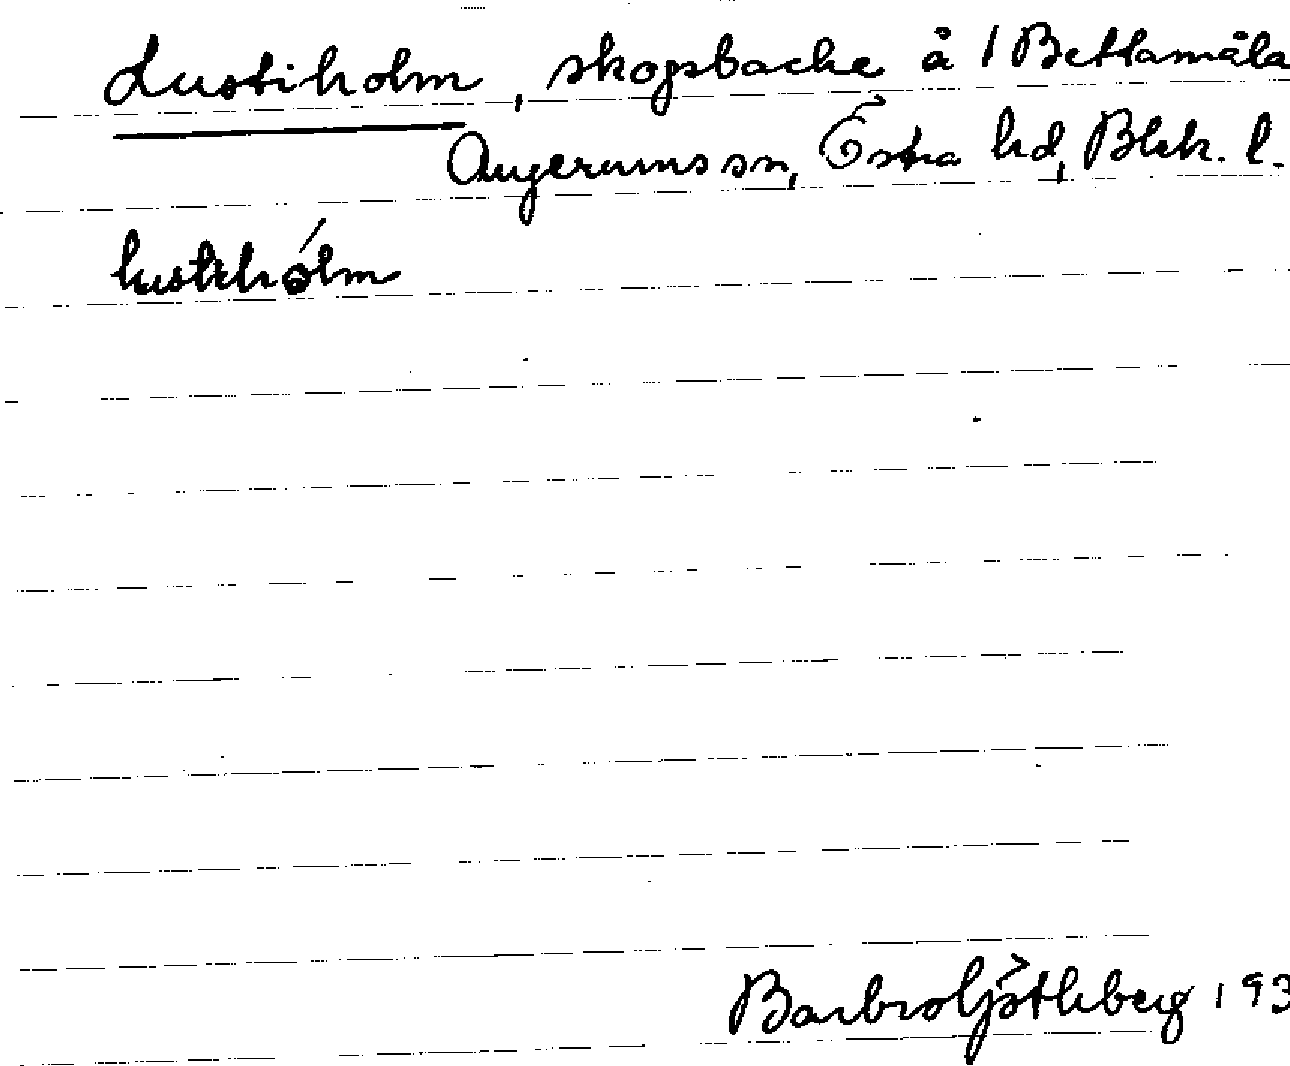 Lustiholm, skogsbacke å 1 Bettamåla
Augerums sn, Östra hd, Blek. l.
lustehólm
Barbro Götlberg 193